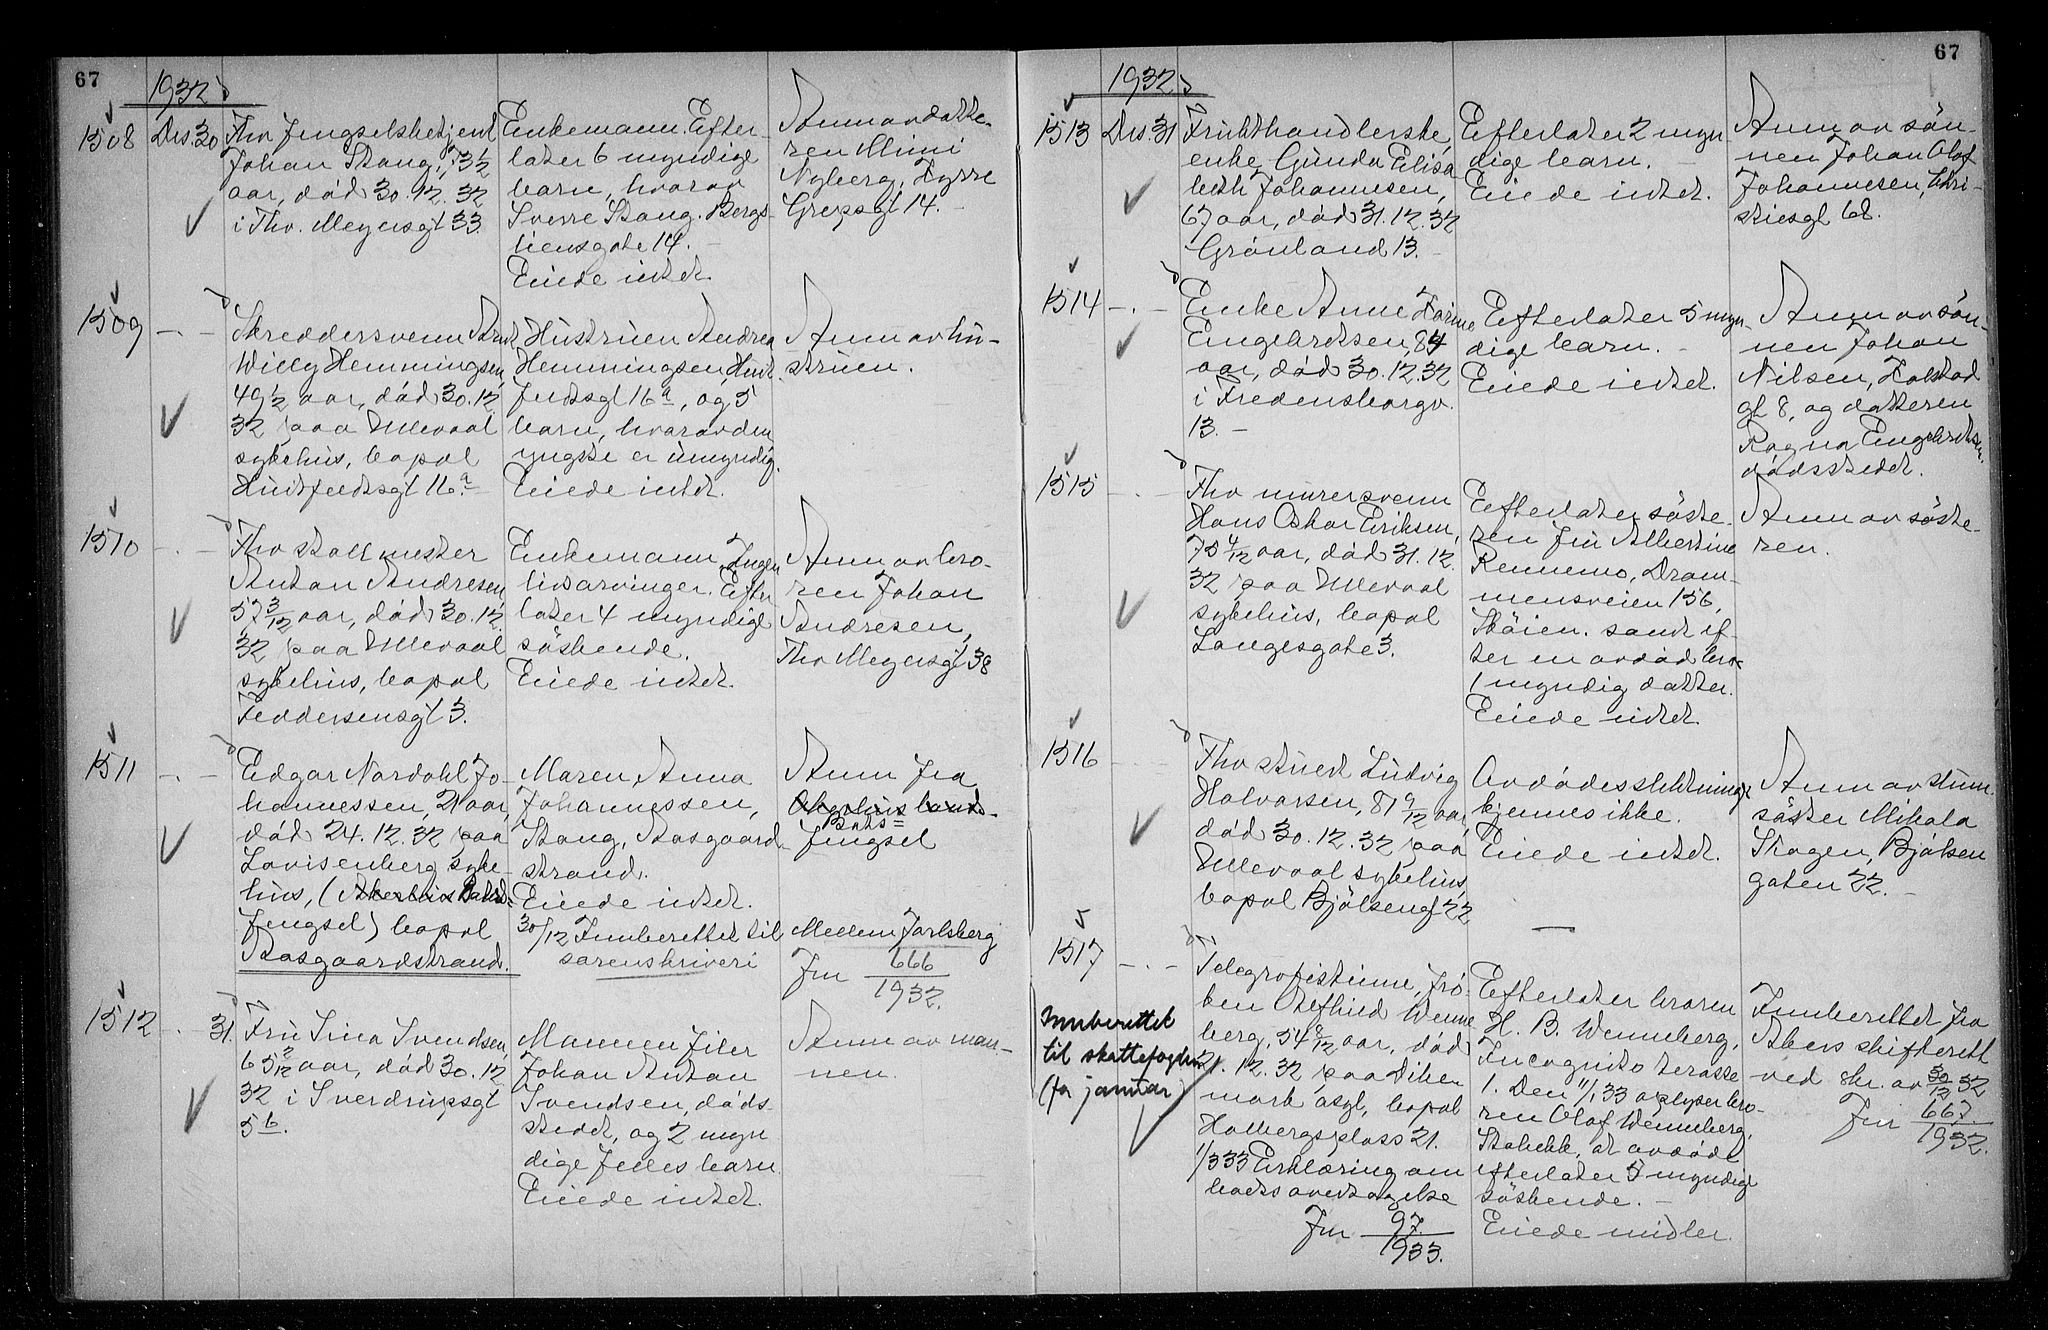 67
1932
1508
Des. 30
Fhv fengselsbetjent
Johan Stang, 73 1/2
aar, død 30.12.32
i Thv. Meyersgt 33.
Enkemann. Efter-
later 6 myndige
barn, hvorav
Sverre Stang. Bergs-
liensgate 14.
Eiede intet.
Anm av datte-
ren Mimi
Nyberg,
Grepsgt 14.
1509
- . -
Skreddersvenn
Willy Hemmingsen,
49 1/2 aar, død 30.12.
32 paa Ullevaal
sykehus, bopæl
Huitfeldtsgt 16 a.
Hustruen Andrea
Hemmingsen Huit-
feldtsgt 16 a, og 5
barn, hvorav den
yngste er umyndig.
Eiede intet.
Anm av hu-
struen.
1510
- . -
Fhv stallmester
Anton Andresen
57 3/12 aar, død 30.12.
32 paa Ullevaal
sykehus, bopæl
Feddersensgt 3.
Enkemann, Ingen
livsarvinger. Efter
later 4 myndige
søskende.
Eiede intet.
Anm av bro-
ren Johan
Andresen,
Thv Meyersgt 38
1511
- . -
Edgar Nordahl Jo-
hannessen, 21 aar,
død 24.12.32 paa
Lovisenberg syke-
hus, (Akershus bots-
fengsel) bopæl
Aasgaardstrand.
Maren Anna
Johannessen,
Stang, Aasgaard-
strand.
Eiede intet.
30/12 Innberettet til
sorenskriveri
Anm fra
Akershus lands-
Bots=
fengsel
Mellem Jarlsberg
Jnr 666/1932.
1512
- . 31.
Fru Lina Svendsen,
65 2/12 aar, død 30.12.
32 i Sverdrupsgt
5 b.
Mannen filer
Johan Anton
Svendsen, døds-
stedet, og 2 myn
dige felles barn.
Eiede intet.
Anm av man-
nen.
67
1932
1513
Des. 31
Frukthandlerske,
enke Gunda Elisa
beth Johannesen,
67 aar, død 31.12.32
Grønland 13.
Efterlater 2 myn
dige barn.
Eiede intet.
Anm av søn-
nen Johan Olaf
Johannesen, Chri-
stiesgt 68.
1514
- . -
Enke Anne Karine
Engebretsen, 84
aar, død 30.12.32
i Fredensborgv.
13.
Efterlater 5 myn-
dige barn.
Eiede intet.
Anm av søn-
nen Johan
Nilsen,
gt 8, og datteren
Ragna Engebretsen.
dødsstedet.
1515
- . -
Fhv murersvenn
Hans Oskar Eriksen,
75 4/12 aar, død 31.12.
32 paa Ullevaal
sykehus, bopæl
Langesgate 3.
Efterlater søste-
ren fru Albertine
Rennemo, Dram-
mensveien 156,
Skøien. samt ef-
ter en avdød bror
1 myndig datter.
Eiede intet.
Anm av søste-
ren.
1516
- . -
Fhv stuert Ludvig
Halvorsen, 81 9/12 aar,
død 30.12.32 paa
Ullevaal sykehus,
bopæl Bjølsengt 22
Avdødes slektninger
kjennes ikke.
Eiede intet.
Anm av stum
søster Mikala
Skogen, Bjølsen
gaten 22.
1517
- . -
Innberettet
til skattefogden
(for januar)
Telegrafistinne, frø-
ken Alfhild Wenne
berg, 54 8/12 aar, død
21.12.32 paa Diken
mark asyl, bopæl
Holbergsplass 21.
1/3 33 Erklæring om
bods overtagelse
Jnr 97/1933.
Efterlater broren
H. B. Wenneberg,
Incognito terasse
1. Den 11/1 33 oplyser bro-
ren Olaf Wenneberg,
Stabekk, at avdøde
efterlater 5 myndige
søskende.
Eiede midler.
Innberettet fra
Akers skifterett
ved skr. av 30/12 32
Jnr 667/1932.